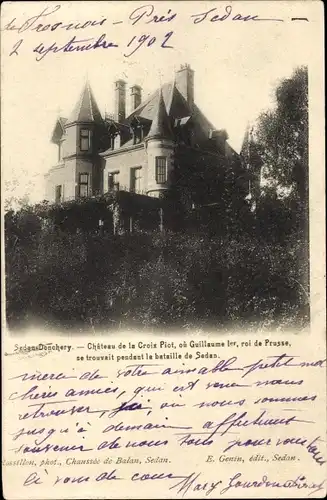 de Frosnois - Près Sedan -
2 septembre 1902
Sedan-Donchery. — Château de la Croix Piot, où Guillaume Ier, roi de Prusse,
se trouvait pendant la bataille de Sedan.
merci de votre aimable petit mot
chères amies, qui est venu nous
retrouver, ici, où nous sommes
jusqu'à demain affectueux
souvenir de nous tous pour vous tous
Rossillon, phot., Chaussée de Balan, Sedan. E. Genin, édit., Sedan.
et va de cœur